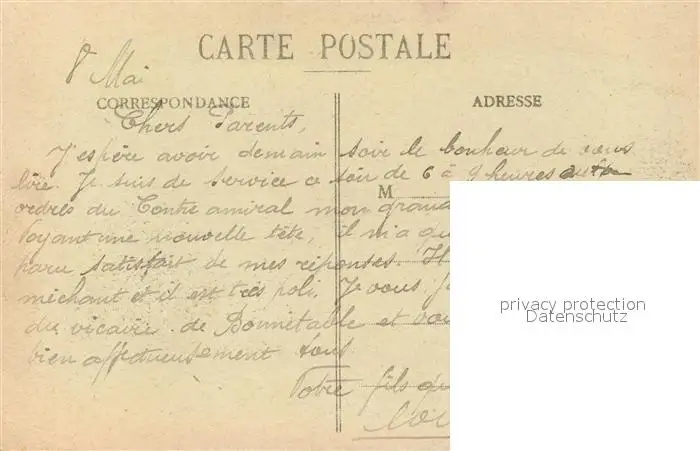 CARTE POSTALE
8 Mai
CORRESPONDANCE
ADRESSE
Chers Parents,
J'espère avoir demain soir le bonheur de vous
lire. Je suis de service ce soir de 6 à 9 heures aux
M
ordres du Contre amiral mon grand
Voyant une nouvelle tête, il m'a qu
paru satisfait de mes réponses. Il
méchant et il est très poli. Je vous
du vicaire de Bonnétable et vou
bien affectueusement tous
Votre fils qu
privacy protection
Datenschutz